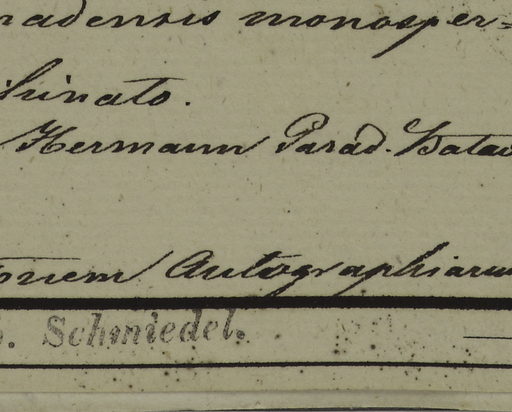 radensis monosper=
hinato.
Hermann Parad. Batav
onem Autographiarum
. Schmiedel.